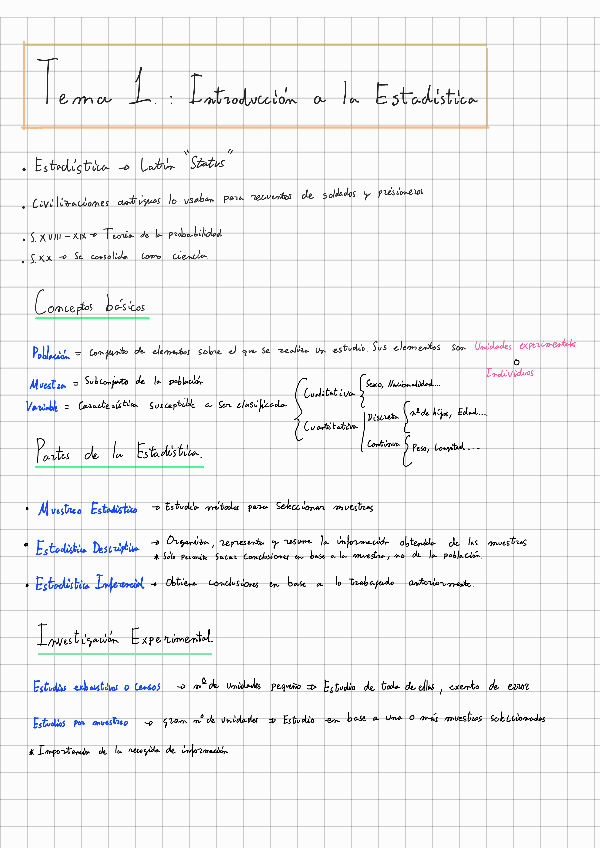 Tema 1.: Introducción a la Estadística
• Estadística → Latín "Status"
• Civilizaciones antiguas lo usaban para recuentos de soldados y prisioneros
• S.XVIII-XIX → Teoría de la probabilidad
• S.XX → Se consolida como ciencia
Conceptos básicos
Población = Conjunto de elementos sobre el que se realiza un estudio. Sus elementos son Unidades experimentales
o
Individuos
Muestra = Subconjunto de la población
Variable = Característica susceptible a ser clasificada
Cualitativa { Sexo, Nacionalidad...
Cuantitativa
Discreta { nº de hijos, Edad...
Continua { Peso, Longitud....
Partes de la Estadística.
• Muestreo Estadístico → Estudia métodos para seleccionar muestras
• Estadística Descriptiva → Organiza, representa y resume la información obtenida de las muestras
* Solo permite sacar conclusiones en base a la muestra, no de la población.
• Estadística Inferencial → Obtiene conclusiones en base a lo trabajado anteriormente.
Investigación Experimental
Estudios exhaustivos o censos → nº de unidades pequeño ⇒ Estudio de toda de ellas, exento de error
Estudios por muestreo → gran nº de unidades ⇒ Estudio en base a una o más muestras seleccionadas
* Importancia de la recogida de información